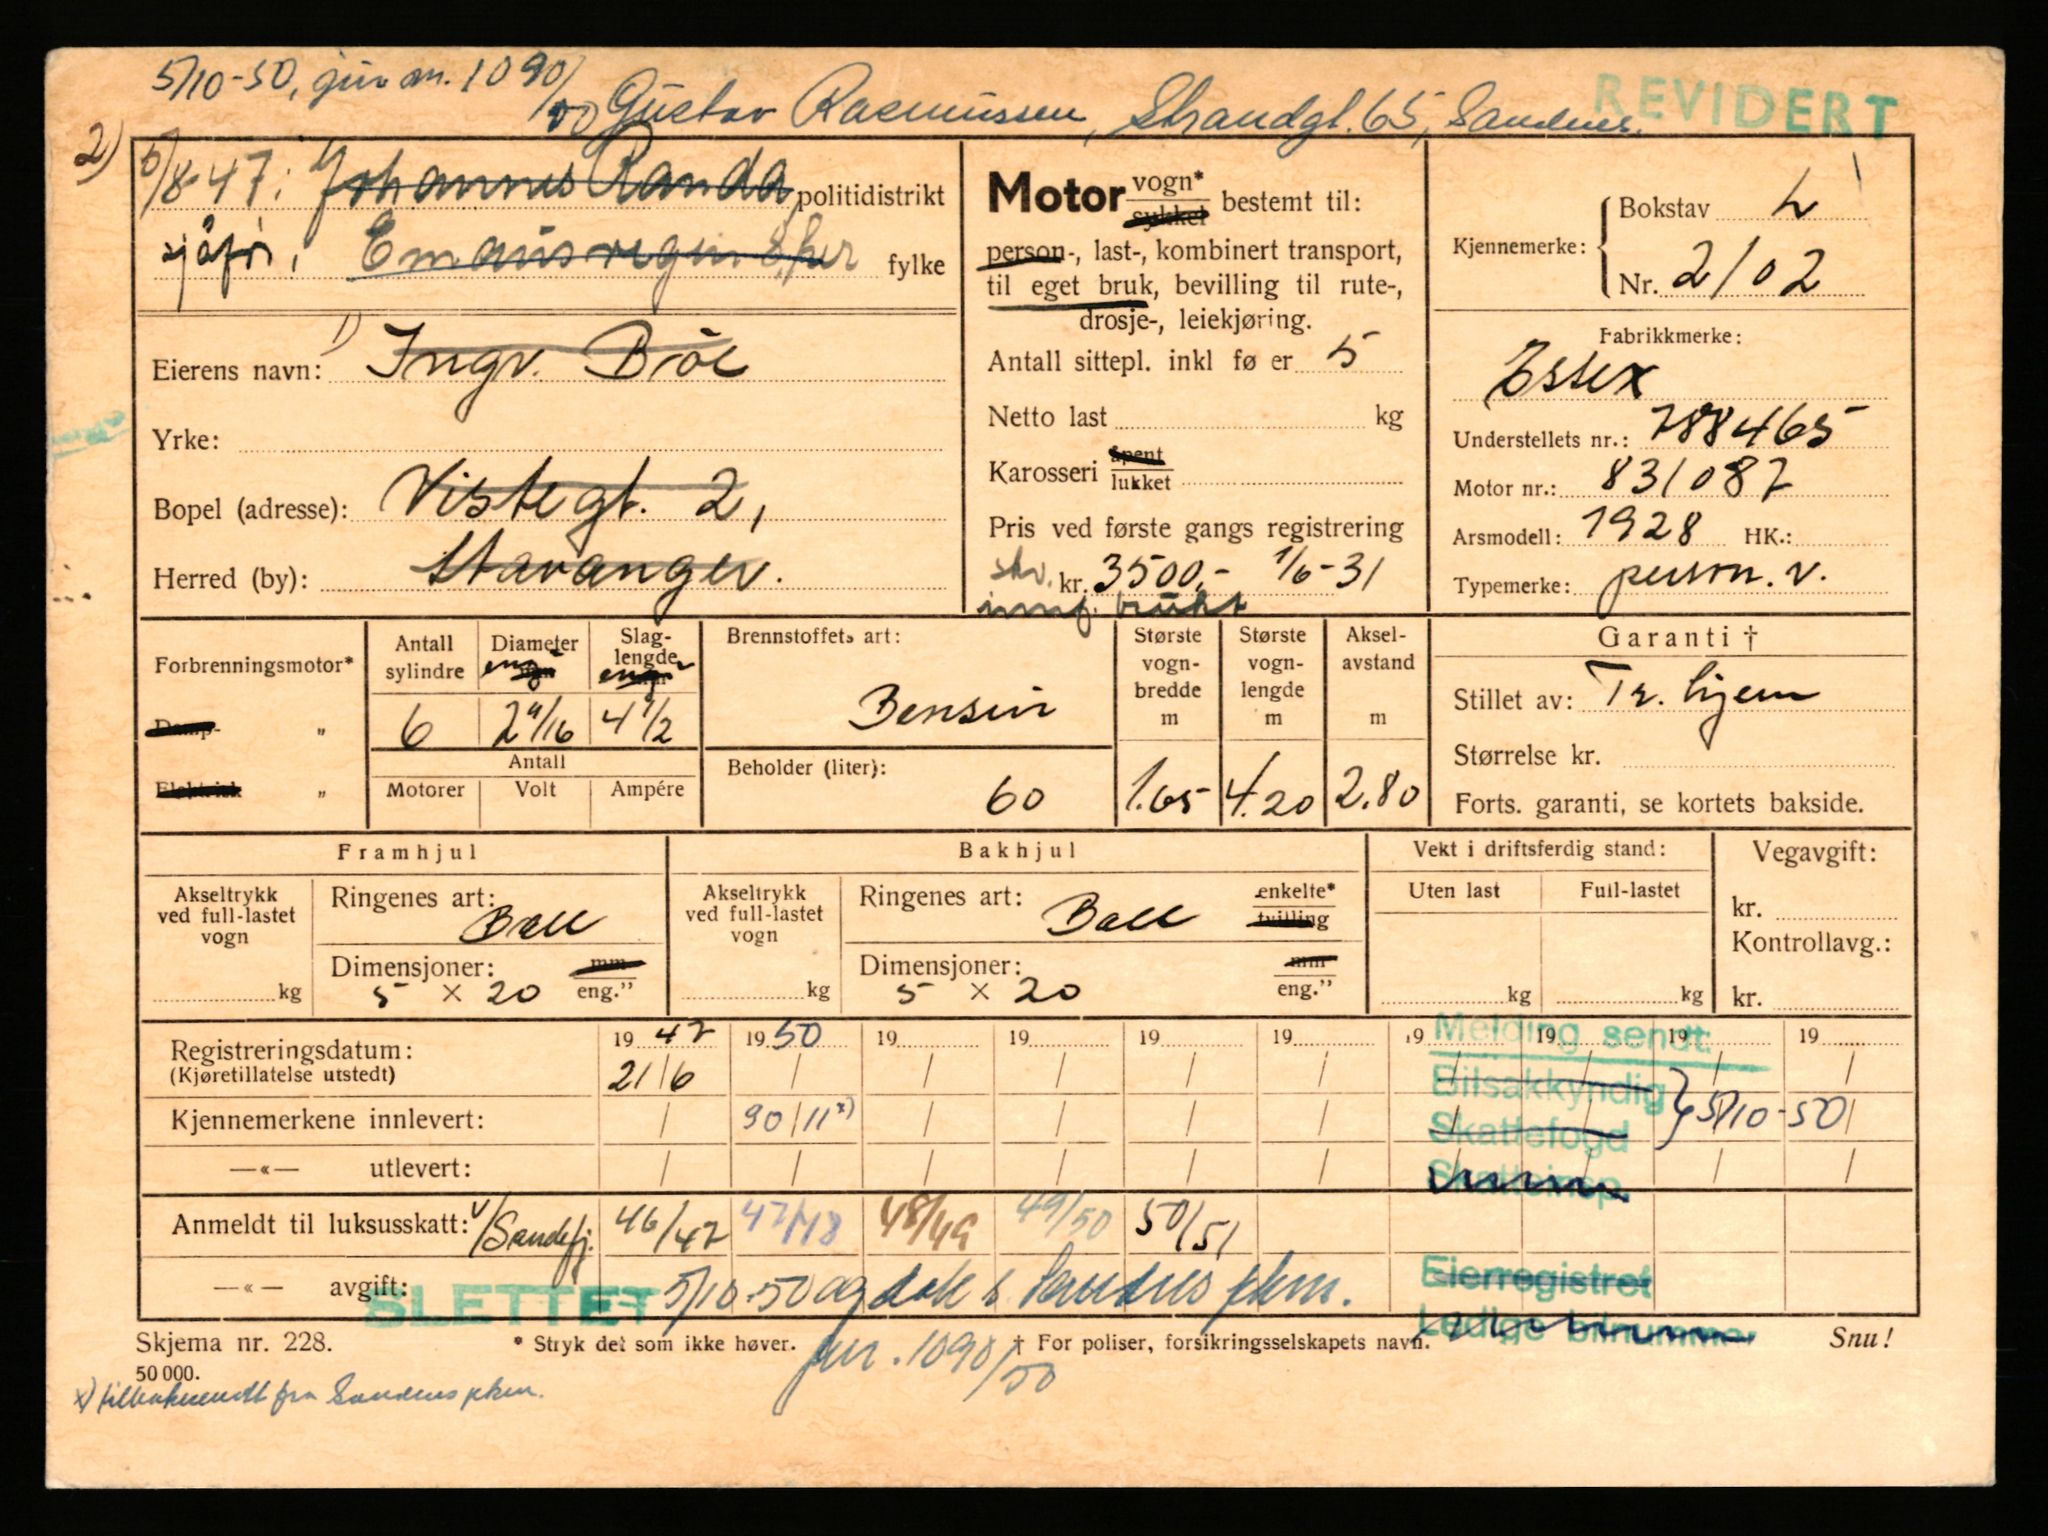 5/10-50, jnr. nr. 1090/50 Gustav Rasmussen, Strandgt. 65, Sandnes.
REVIDERT
2) 6/8-47: Johannes Randa politidistrikt
sjåfør, fylke
Eierens navn: 1) Ingv. Bröe
Yrke:
Bopel (adresse): Vistegt. 2,
Herred (by): Stavanger.
Motor vogn* sykkel bestemt til:
person-, last-, kombinert transport,
til eget bruk, bevilling til rute-,
drosje-, leiekjøring.
Antall sittepl. inkl fø er 5
Netto last kg
Karosseri åpent lukket
Pris ved første gangs registrering
kr. 3500,- 1/6-31
brukt
Kjennemerke: Bokstav L
Nr. 2102
Fabrikkmerke:
Essex
Understellets nr.: 788465
Motor nr.: 831087
Arsmodell: 1928 HK.:
Typemerke: person.v.
Forbrenningsmotor*
Damp- "
Elektrisk "
Antall sylindre
6
Diameter eng."
2 11/16
Slag-lengde eng."
4 1/2
Antall
Motorer Volt Ampére
Brennstoffets art:
Bensin
Beholder (liter):
60
Største vogn-bredde m
1.65
Største vogn-lengde m
4.20
Aksel-avstand m
2.80
Garanti †
Stillet av: Tr. hjem
Størrelse kr.
Forts. garanti, se kortets bakside.
Framhjul
Akseltrykk ved full-lastet vogn
kg
Ringenes art: Ball
Dimensjoner: mm
5 × 20 eng."
Bakhjul
Akseltrykk ved full-lastet vogn
kg
Ringenes art: Ball enkelte* tvilling
Dimensjoner: mm
5 × 20 eng."
Vekt i driftsferdig stand:
Uten last Full-lastet
kg kg
Vegavgift:
kr.
Kontrollavg.:
kr.
19 47 19 50 19 19 19 19 19 19 19 19
Registreringsdatum:
(Kjøretillatelse utstedt) 21/6 / / / / / / / / /
Kjennemerkene innlevert: / 30/11 x) / / / / / /
—«— utlevert: / / / / / / / / / /
Anmeldt til luksusskatt: v/Sandefj. 46/47 47/48 48/49 49/50 50/51
—«— avgift:
Melding sendt:
Bilsakkyndig
Skattefogd 5/10-50
Skatteinsp.
Eierregistret
Ledige bilnummer
SLETTET 5/10-50 og dok t. Sandnes pkm.
jnr. 1090/50
Skjema nr. 228. * Stryk det som ikke høver. † For poliser, forsikringsselskapets navn. Snu!
50 000.
x) tilbakesendt fra Sandnes pkm.